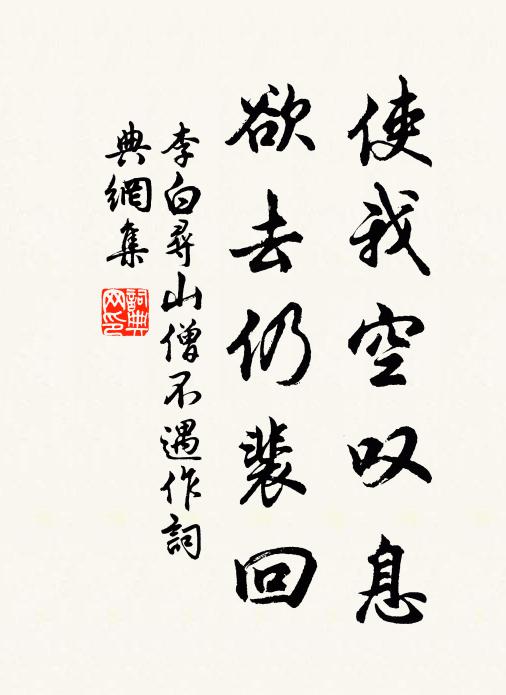 使我空叹息
欲去仍裴回
李白尋山僧不遇作詞
典網集
詞典
网印